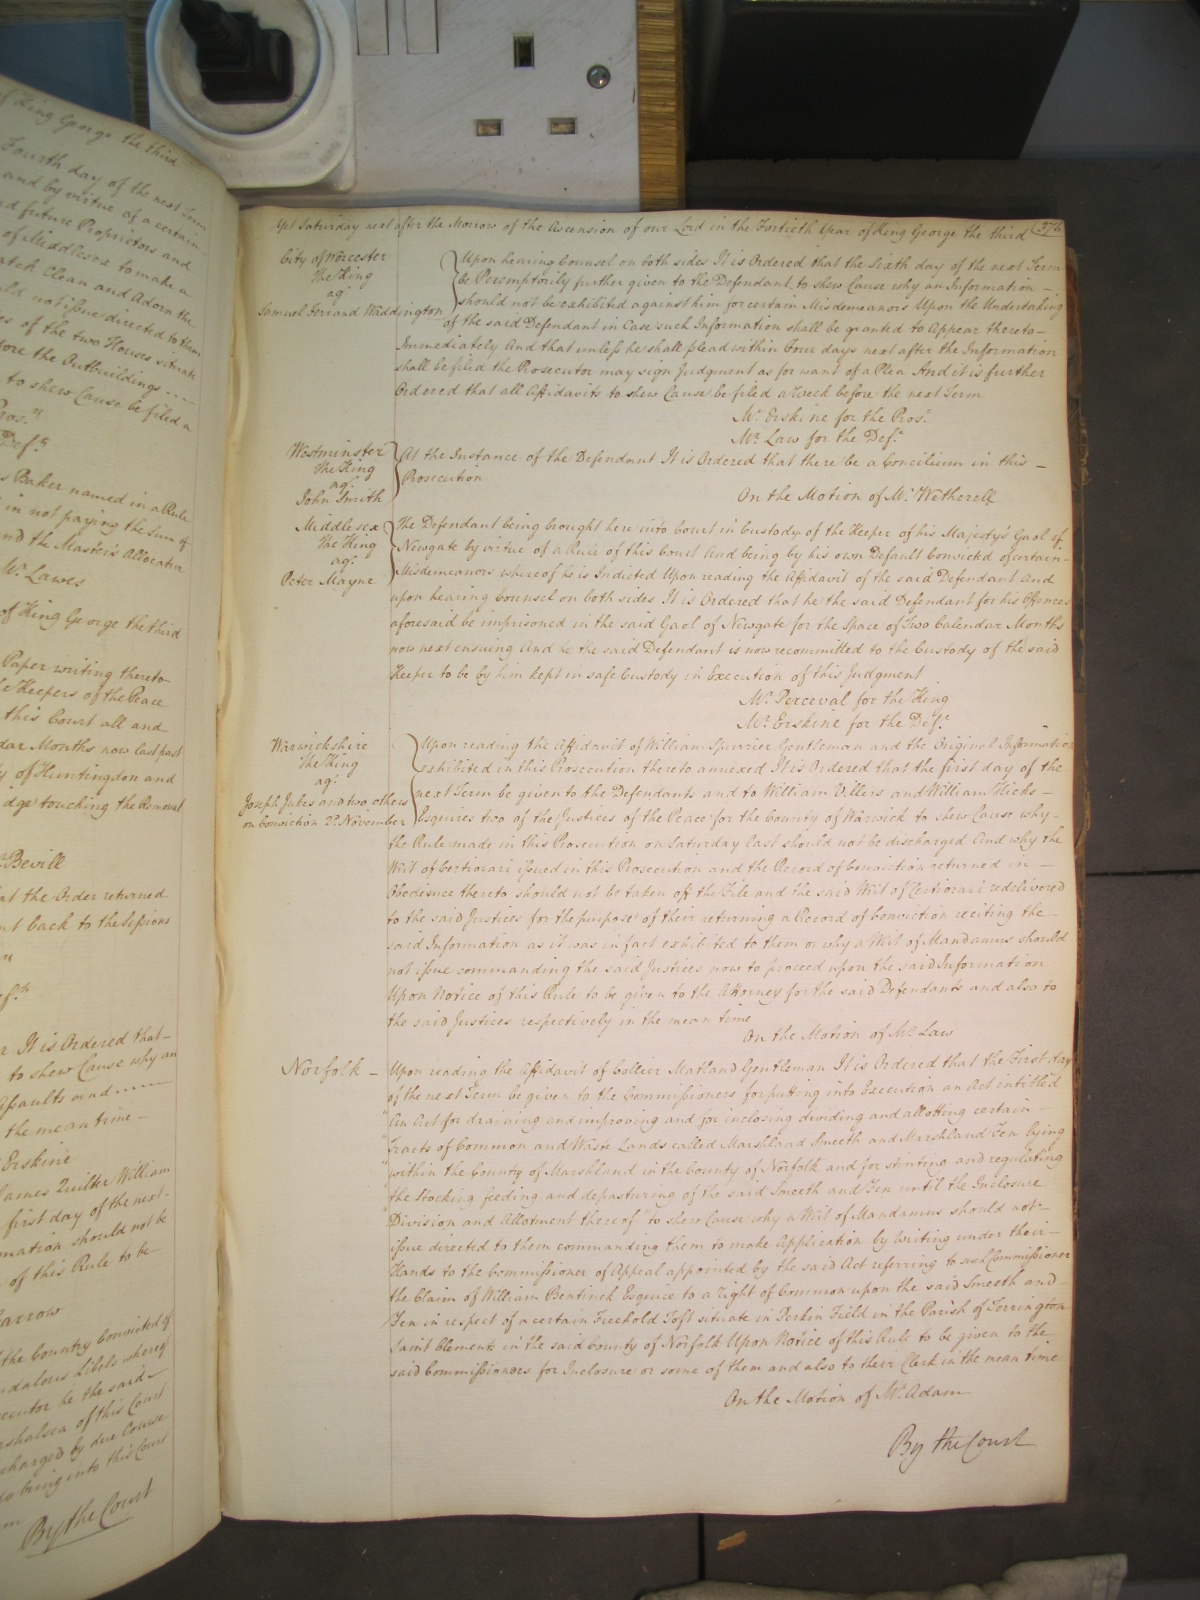 of King George the third
Fourth day of the next Term
and by virtue of a certain
future Proprietors and
of Middlesex to make a
Clean and Adorn the
not issue directed to them
of the two Houses situate
the Outbuildings
to shew Cause be filed a
Pros.r
Def.t
Baker named in a Rule
in not paying the Sum of
and the Master's Allocatur
Mr. Lawes
of King George the third
Paper writing thereto
Keepers of the Peace
this Court all and
Months now last past
of Huntingdon and
touching the Removal
Bevill
at the Order returned
back to the Sessions
It is Ordered that
to shew Cause why an
Assaults and
the mean time
Erskine
James Quilter William
first day of the next
should not be
of this Rule to be
Garrow
the Country Convicted of
Libels whereof
he the said
of this Court
by due Course
bring into this Court
By the Court
Yet Saturday next after the Morrow of the Ascension of our Lord in the Fortieth Year of King George the third (376
City of Worcester
The King
ag.t
Samuel Ferrand Waddington
Upon hearing Counsel on both sides It is Ordered that the Sixth day of the next Term
be Peremptorily further given to the Defendant to shew Cause why an Information
should not be exhibited against him for certain Misdemeanors Upon the Undertaking
of the said Defendant in Case such Information shall be granted to Appear thereto
Immediately And that unless he shall plead within Four days next after the Information
shall be filed the Prosecutor may sign Judgment as for want of a Plea And it is further
Ordered that all Affidavits to shew Cause be filed a Week before the next Term
Mr. Erskine for the Pros.r
Mr. Law for the Def.t
Westminster
The King
ag.t
John Smith
At the Instance of the Defendant It is Ordered that there be a Concilium in this
Prosecution
On the Motion of Mr. Wetherell
Middlesex
The King
ag.t
Peter Mayne
The Defendant being brought here into Court in Custody of the Keeper of his Majesty's Gaol of
Newgate by virtue of a Rule of this Court And being by his own Default Convicted of certain
Misdemeanors whereof he is Indicted Upon reading the Affidavit of the said Defendant And
upon hearing Counsel on both sides It is Ordered that he the said Defendant for his Offences
aforesaid be imprisoned in the said Gaol of Newgate for the Space of Two Calendar Months
now next ensuing And he the said Defendant is now recommitted to the Custody of the said
Keeper to be by him kept in safe Custody in Execution of this Judgment
Mr. Perceval for the King
Mr. Erskine for the Def.t
Warwickshire
The King
ag.t
Joseph Jukes and two others
on Conviction 2d. November
Upon reading the Affidavit of William Spurrier Gentleman and the Original Information
exhibited in this Prosecution thereto annexed It is Ordered that the first day of the
next Term be given to the Defendants and to William Villers and William Hicks
Esquires two of the Justices of the Peace for the County of Warwick to shew Cause why
the Rule made in this Prosecution on Saturday last should not be discharged And why the
Writ of Certiorari issued in this Prosecution and the Record of Conviction returned in
Obedience thereto should not be taken off the File and the said Writ of Certiorari redelivered
to the said Justices for the purpose of their returning a Record of Conviction reciting the
said Information as it was in fact exhibited to them or why a Writ of Mandamus should
not issue commanding the said Justices now to proceed upon the said Information
Upon Notice of this Rule to be given to the Attorney for the said Defendants and also to
the said Justices respectively in the mean time
On the Motion of Mr. Law
Norfolk
Upon reading the Affidavit of Collier Matland Gentleman It is Ordered that the First day
of the next Term be given to the Commissioners for putting into Execution an Act intitled
"An Act for draining and improving and for inclosing dividing and allotting certain
"Tracts of Common and Waste Lands called Marshland Smeeth and Marshland Fen lying
"within the County of Marshland in the County of Norfolk and for stinting and regulating
"the Stocking feeding and depasturing of the said Smeeth and Fen until the Inclosure
"Division and Allotment thereof" to shew Cause why a Writ of Mandamus should not
issue directed to them commanding them to make Application by Writing under their
Hands to the Commissioner of Appeal appointed by the said Act referring to such Commissioner
the Claim of William Bentinck Esquire to a right of Common upon the said Smeeth and
Fen in respect of a certain Freehold Toft situate in Perkin Field in the Parish of Terrington
Saint Clements in the said County of Norfolk Upon Notice of this Rule to be given to the
said Commissioners for Inclosure or some of them and also to their Clerk in the mean time
On the Motion of Mr. Adam
By the Court